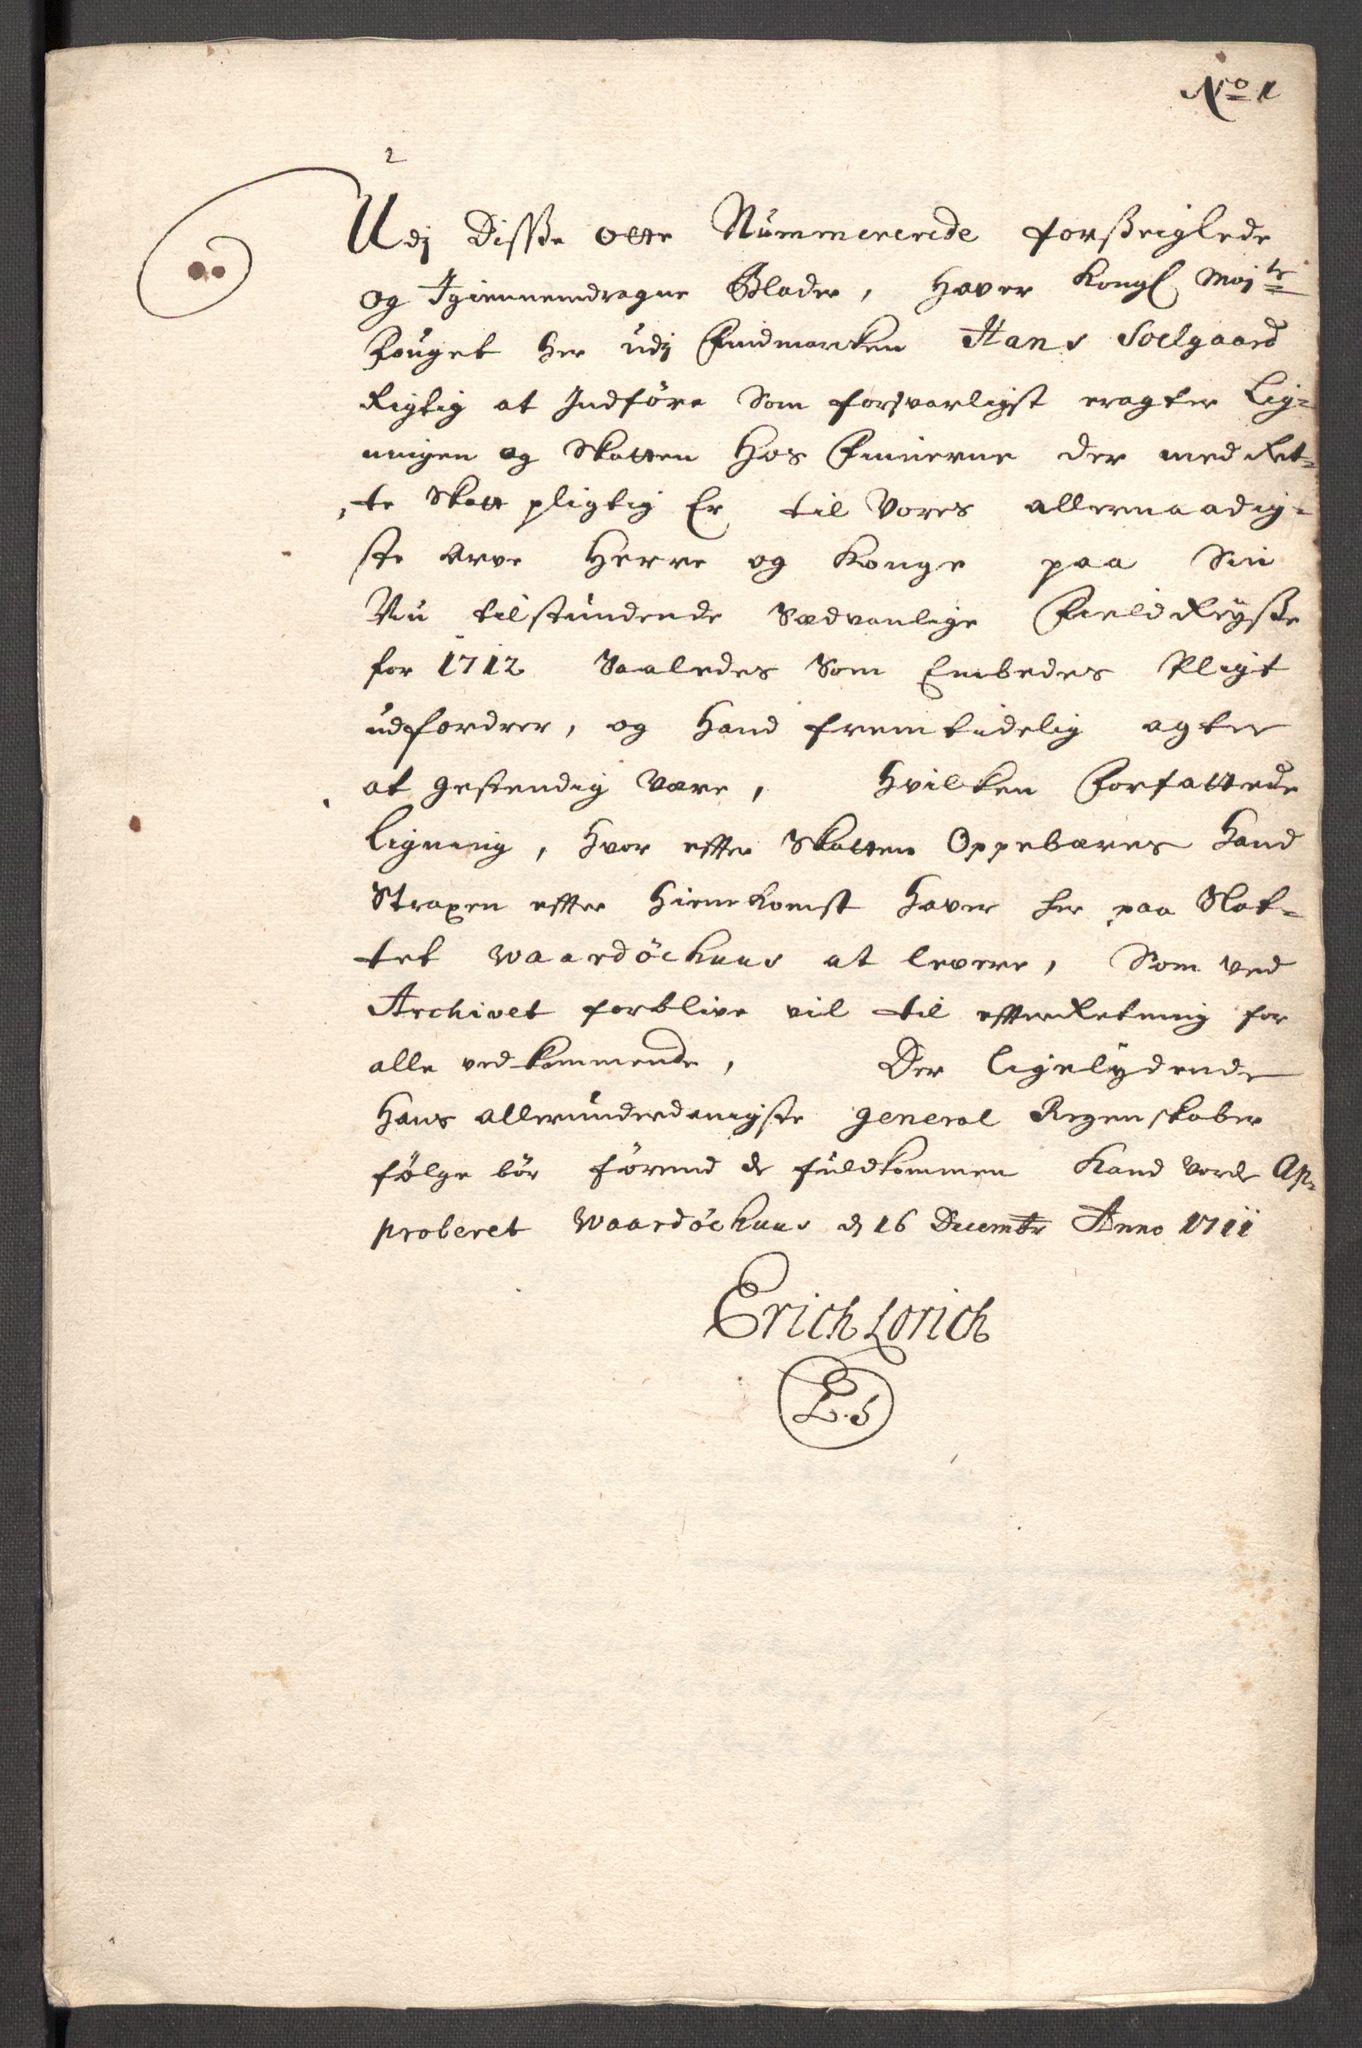 No 1
Udj Disse otte Nummererede forseiglede
og Igiennemdragne Blader, haver Kongl Maj.te
Fouget her udj Findmarken Hans Soelgaard
Rigtig at Indföre Som forsvarligst eragter Lig-
ningen og Skatten hos Finnerne der med Ret-
te Skatt pligtig Er til Vores allernaadig-
ste Arve Herre og Konge paa Sin
Nu tilstundende Sædvanlige Field Reyse
for 1712 Saaledes Som Embedes Pligt
udfordrer, og hand fremtidelig agter
at gestendig være, hvilken Forfattede
Ligning, hvor effter Skatten Oppebæres hand
Straxen effter Hiemkomst haver her paa Slot-
tet Waardöehuus at levere, Som ved
Archivet forblive vil til effterRetning for
alle vedkommende, Der ligelydende
hans allerunderdanigste general Regenskaber
følge bör förend de fuldkommen Kand vorde Ap-
proberet Waardöehuus d 16 Decembr Anno 1711
Erich Lorich
L.S